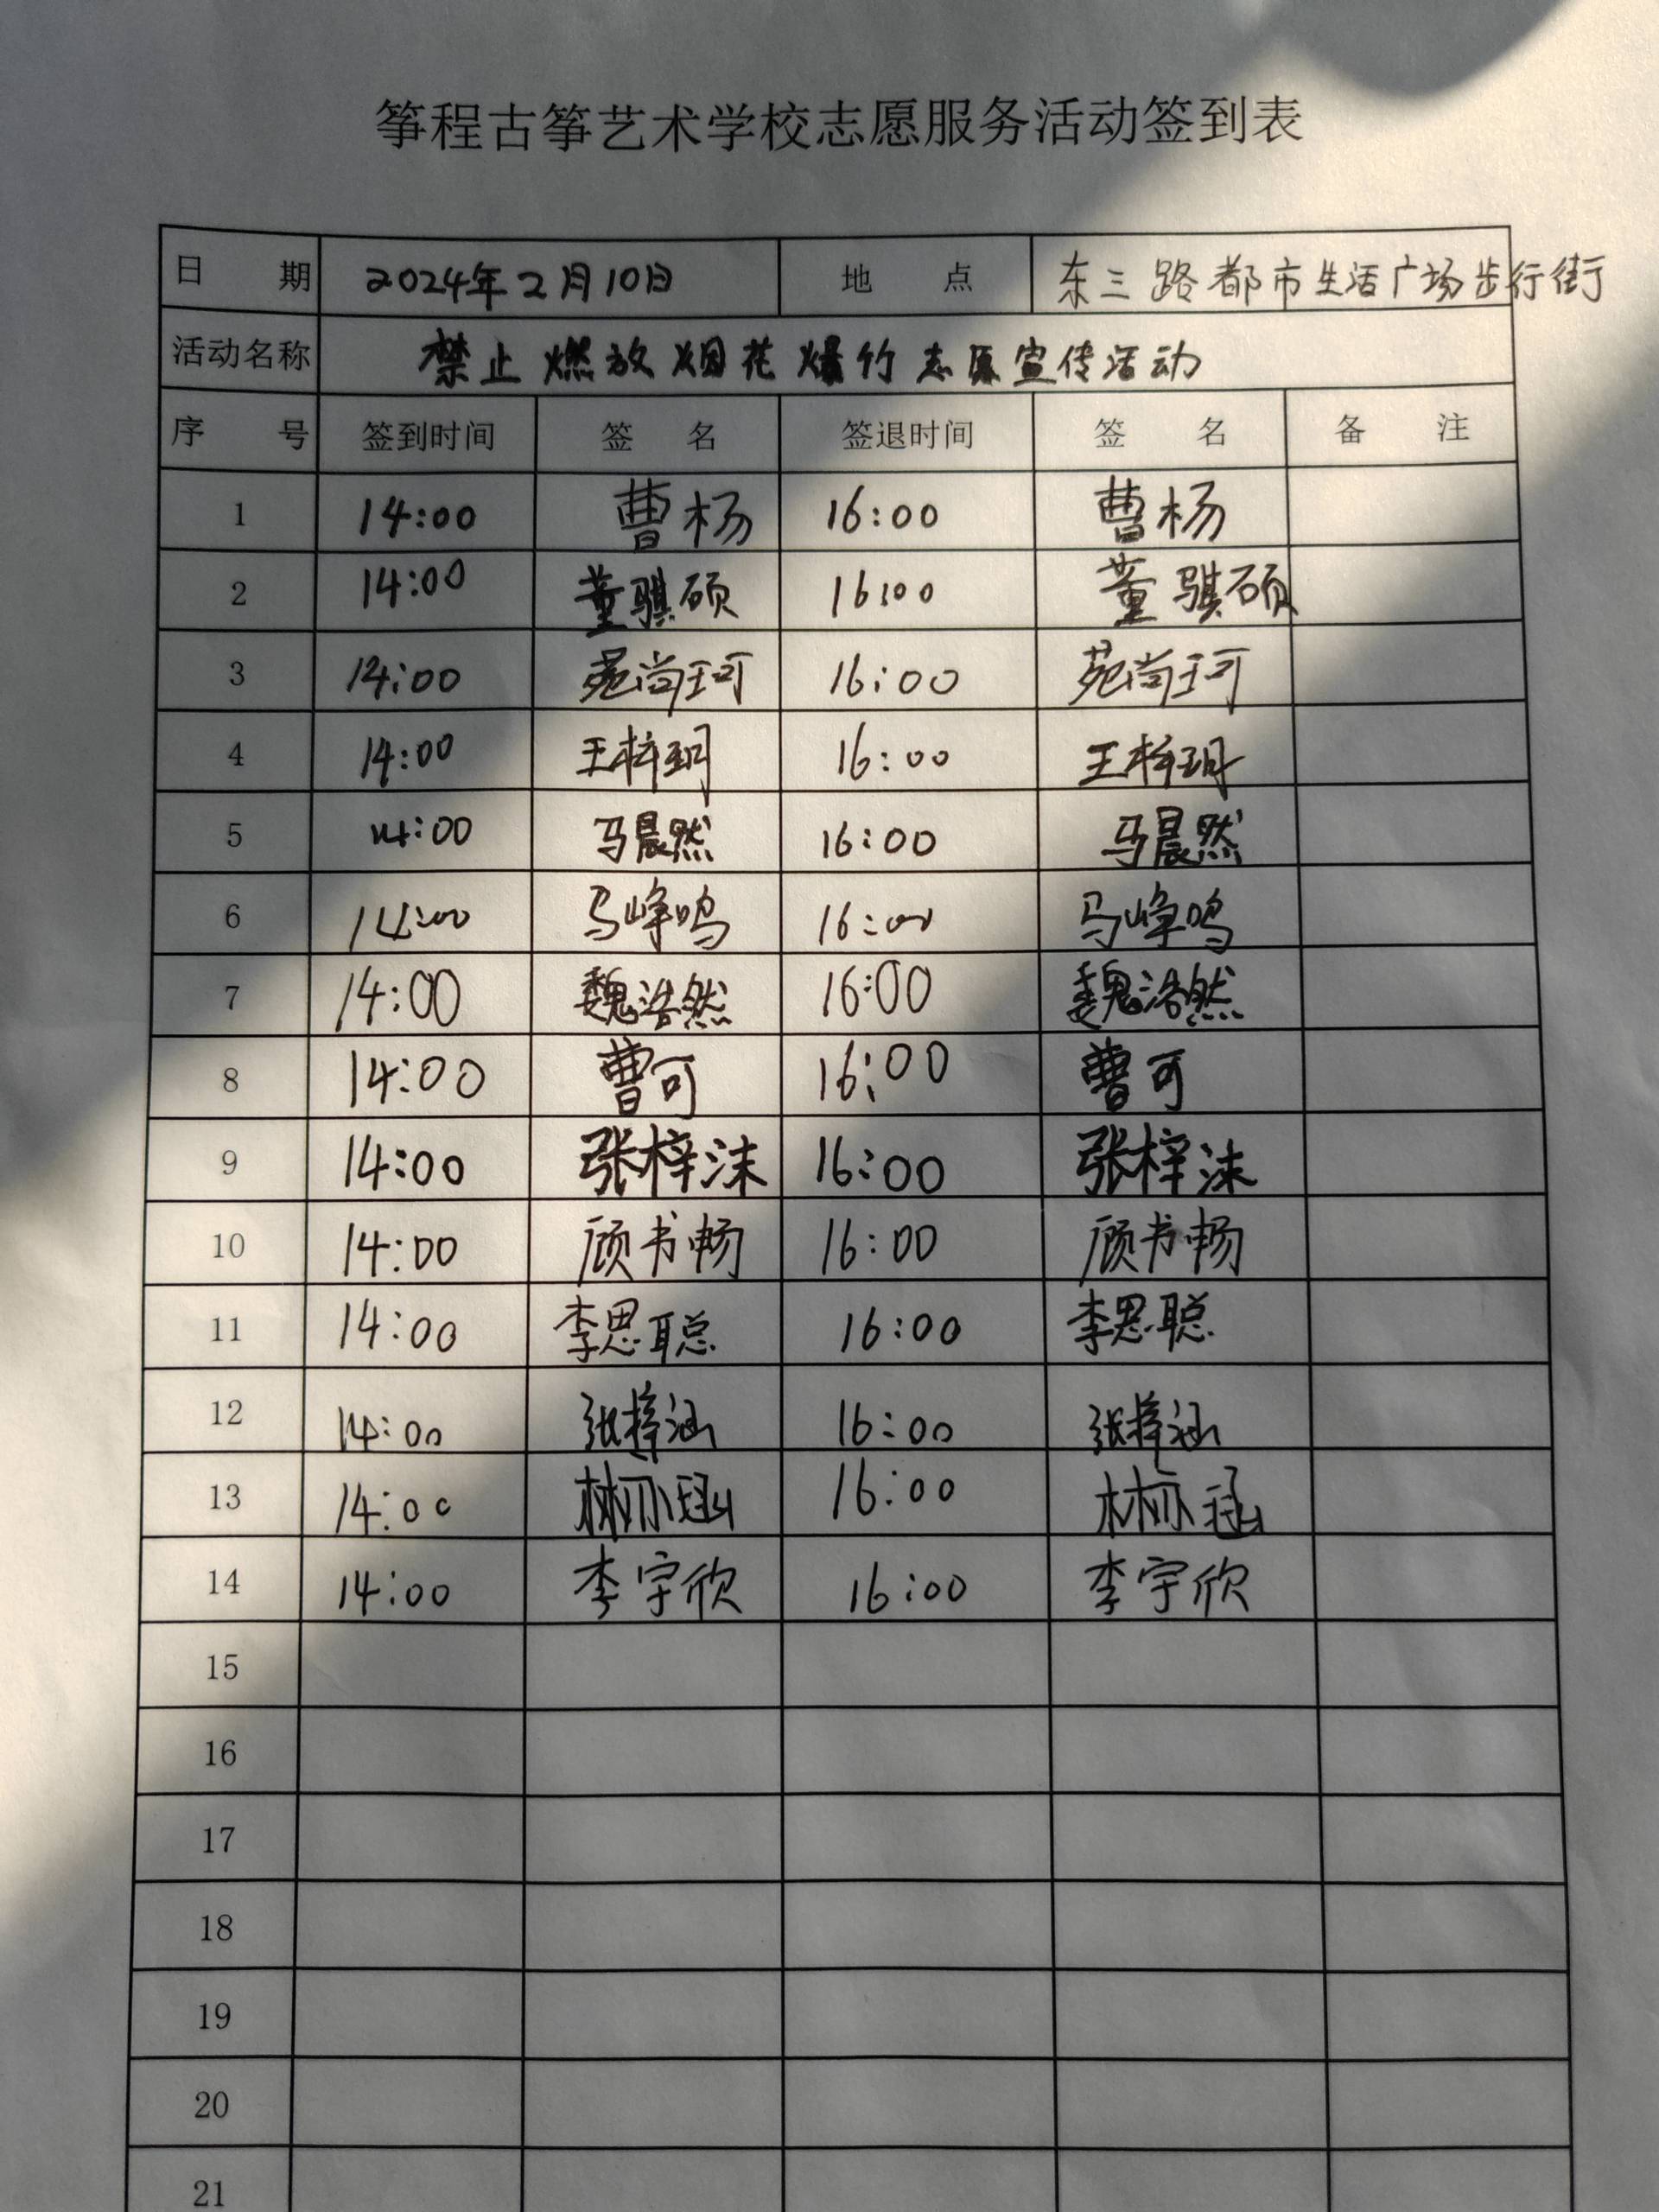 筝程古筝艺术学校志愿服务活动签到表
日期 2024年2月10日 地点 东三路都市生活广场步行街
活动名称 禁止燃放烟花爆竹志愿宣传活动
序号 签到时间 签名 签退时间 签名 备注
1 14:00 曹杨 16:00 曹杨
2 14:00 董骐硕 16:00 董骐硕
3 14:00 苑尚珂 16:00 苑尚珂
4 14:00 王梓玥 16:00 王梓玥
5 14:00 马晨然 16:00 马晨然
6 14:00 马峥鸣 16:00 马峥鸣
7 14:00 魏浩然 16:00 魏浩然
8 14:00 曹可 16:00 曹可
9 14:00 张梓沫 16:00 张梓沫
10 14:00 顾书畅 16:00 顾书畅
11 14:00 李思聪 16:00 李思聪
12 14:00 张梓涵 16:00 张梓涵
13 14:00 16:00
14 14:00 李宇欣 16:00 李宇欣
15
16
17
18
19
20
21